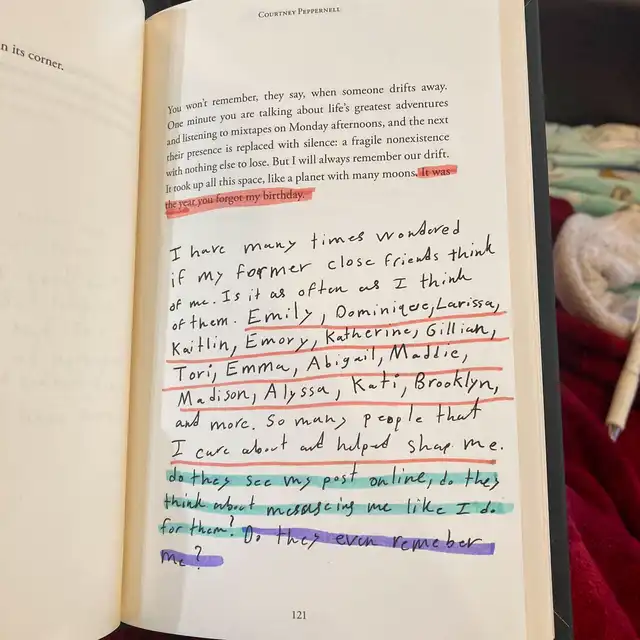 n its corner.
Courtney Peppernell
You won't remember, they say, when someone drifts away.
One minute you are talking about life's greatest adventures
and listening to mixtapes on Monday afternoons, and the next
their presence is replaced with silence: a fragile nonexistence
with nothing else to lose. But I will always remember our drift.
It took up all this space, like a planet with many moons. It was
the year you forgot my birthday.
I have many times wondered
if my former close friends think
of me. Is it as often as I think
of them. Emily, Dominique, Larissa,
Kaitlin, Emory, Katherine, Gillian,
Tori, Emma, Abigail, Maddie,
Madison, Alyssa, Kati, Brooklyn,
and more. So many people that
I care about and helped shap me.
do they see my post online, do they
think about messaging me like I do
for them? Do they even remeber
me?
121